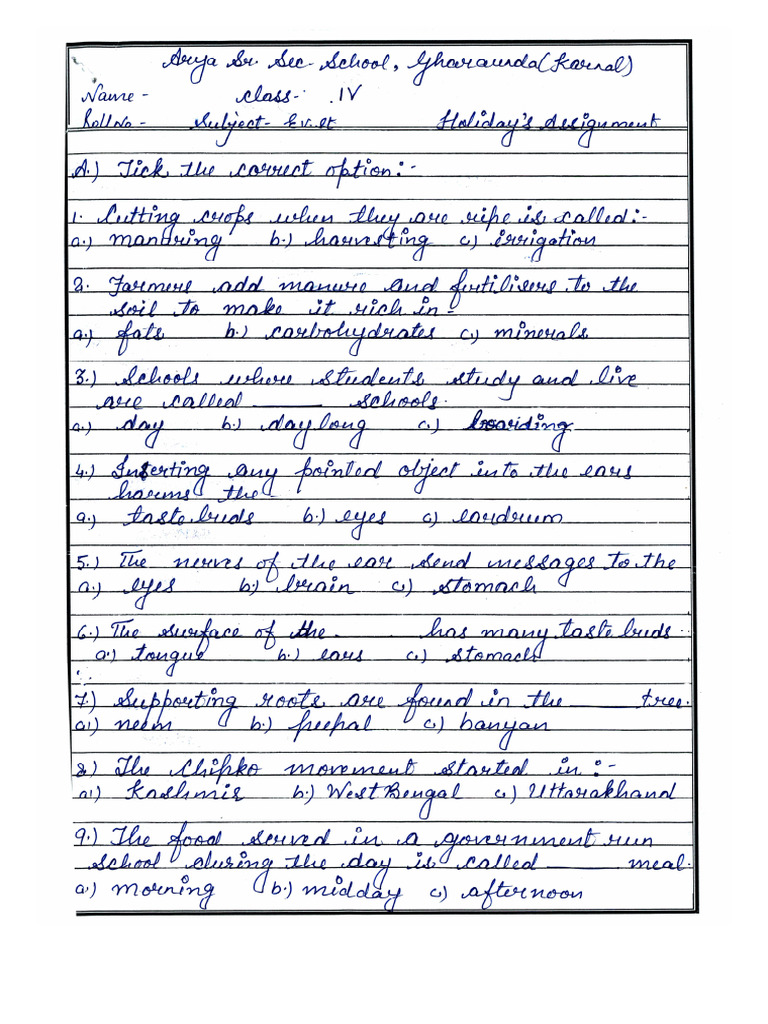 Arya Sr. Sec. School, Gharaunda (Karnal)
Name - Class- IV
Roll No - Subject - E.v.st Holiday's Assignment
A.) Tick the correct option:-
1. Cutting crops when they are ripe is called:-
a.) manuring b.) harvesting c.) irrigation
2. Farmers add manure and fertilisers to the
soil to make it rich in -
a.) fats b.) carbohydrates c.) minerals
3.) Schools where students study and live
are called ______ schools.
a.) day b.) day long c.) boarding
4.) Inserting any pointed object into the ears
harms the -
a.) taste buds b.) eyes c.) eardrum
5.) The nerves of the ear send messages to the
a.) eyes b.) brain c.) stomach
6.) The surface of the ______ has many taste buds.
a.) tongue b.) ears c.) stomach
7.) Supporting roots are found in the ______ tree.
a.) neem b.) peepal c.) banyan
8.) The Chipko movement started in :-
a.) Kashmir b.) West Bengal c.) Uttarakhand
9.) The food served in a government run
school during the day is called ______ meal.
a.) morning b.) midday c.) afternoon